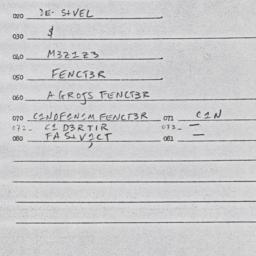 020 DE-SIVEL
030 $
040 M3Z1Z3
050 FENCT3R
060 A GROJS FENCT3R
070 C1NOF1N1M FENCT3R 071 C1N
072 C1 D3RTIR 073 —
080 FA SIV1CT 081 —